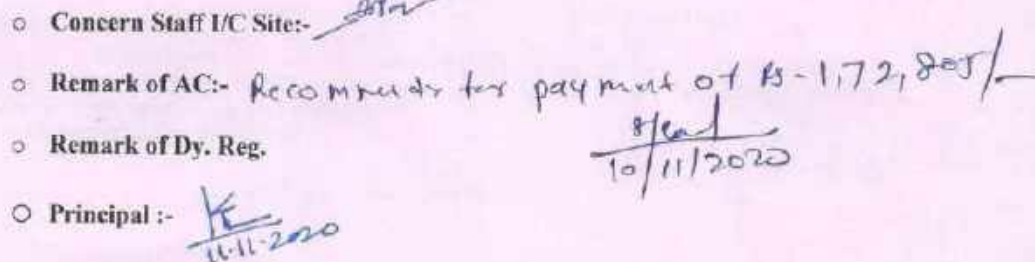 Concern Staff I/C Site:-
Remark of AC:- Recommends for payment of Rs-1,72,805/-
Remark of Dy. Reg.
10/11/2020
Principal :-
11-11-2020